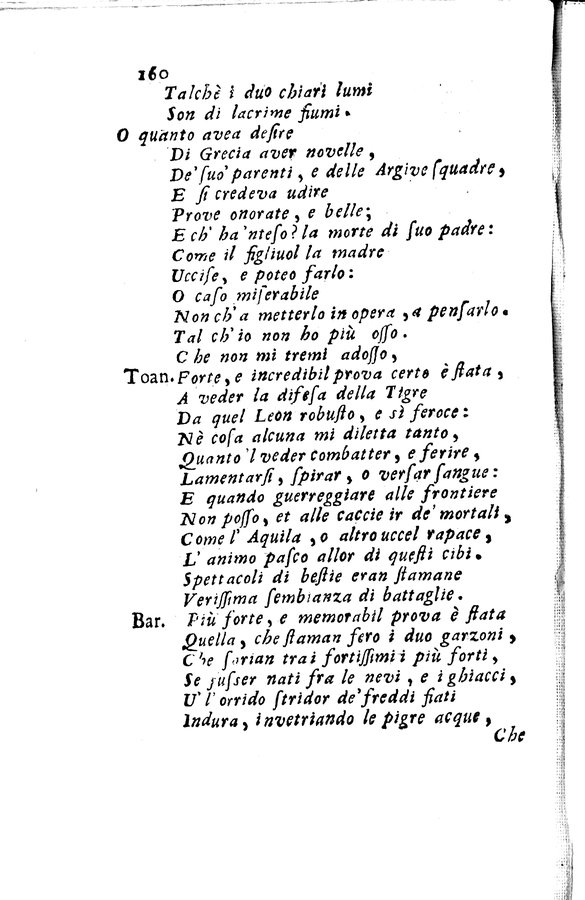 160
Talchè i duo chiari lumi
Son di lacrime fiumi.
O quanto avea deſire
Di Grecia aver novelle,
De' ſuo' parenti, e delle Argive ſquadre,
E ſi credeva udire
Prove onorate, e belle;
E ch' ha 'nteſo? la morte di ſuo padre:
Come il figliuol la madre
Ucciſe, e poteo farlo:
O caſo miſerabile
Non ch' a metterlo in opera, a penſarlo.
Tal ch' io non ho più oſſo.
Che non mi tremi adoſſo,
Toan. Forte, e incredibil prova certo è ſtata,
A veder la difeſa della Tigre
Da quel Leon robuſto, e sì feroce:
Nè coſa alcuna mi diletta tanto,
Quanto 'l veder combatter, e ferire,
Lamentarſi, ſpirar, o verſar ſangue:
E quando guerreggiare alle frontiere
Non poſſo, et alle caccie ir de' mortali,
Come l' Aquila, o altro uccel rapace,
L' animo paſco allor di queſti cibi.
Spettacoli di beſtie eran ſtamane
Veriſſima ſembianza di battaglie.
Bar. Più forte, e memorabil prova è ſtata
Quella, che ſtaman fero i duo garzoni,
Che ſarian trai fortiſſimi i più forti,
Se fuſſer nati fra le nevi, e i ghiacci,
U' l' orrido ſtridor de' freddi fiati
Indura, invetriando le pigre acque,
Che